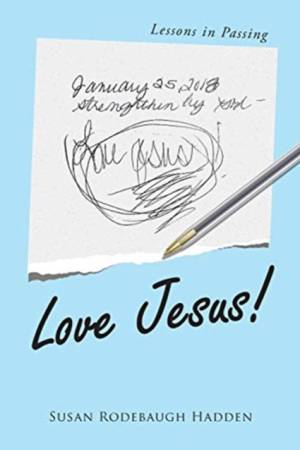 Lessons in Passing
January 25 2018
strengthen by
Love Jesus!
Love Jesus!
SUSAN RODEBAUGH HADDEN